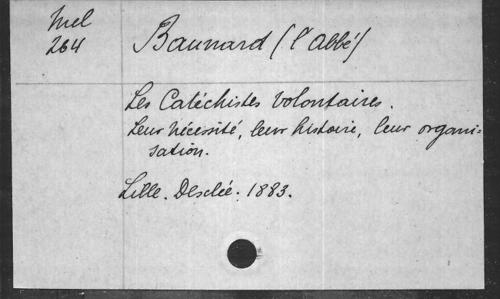 Mel
264
Baunard (l'abbé)
Les Catéchistes volontaires.
Leur nécessité, leur histoire, leur organi-
sation.
Lille. Desclée. 1883.